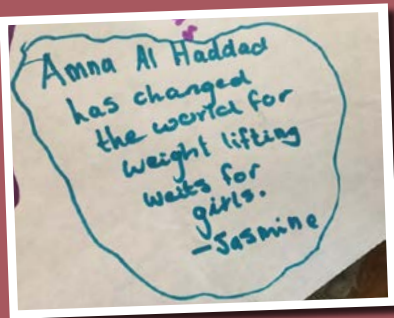 Amna Al Haddad
has changed
the world for
weight lifting
waits for
girls.
-Jasmine